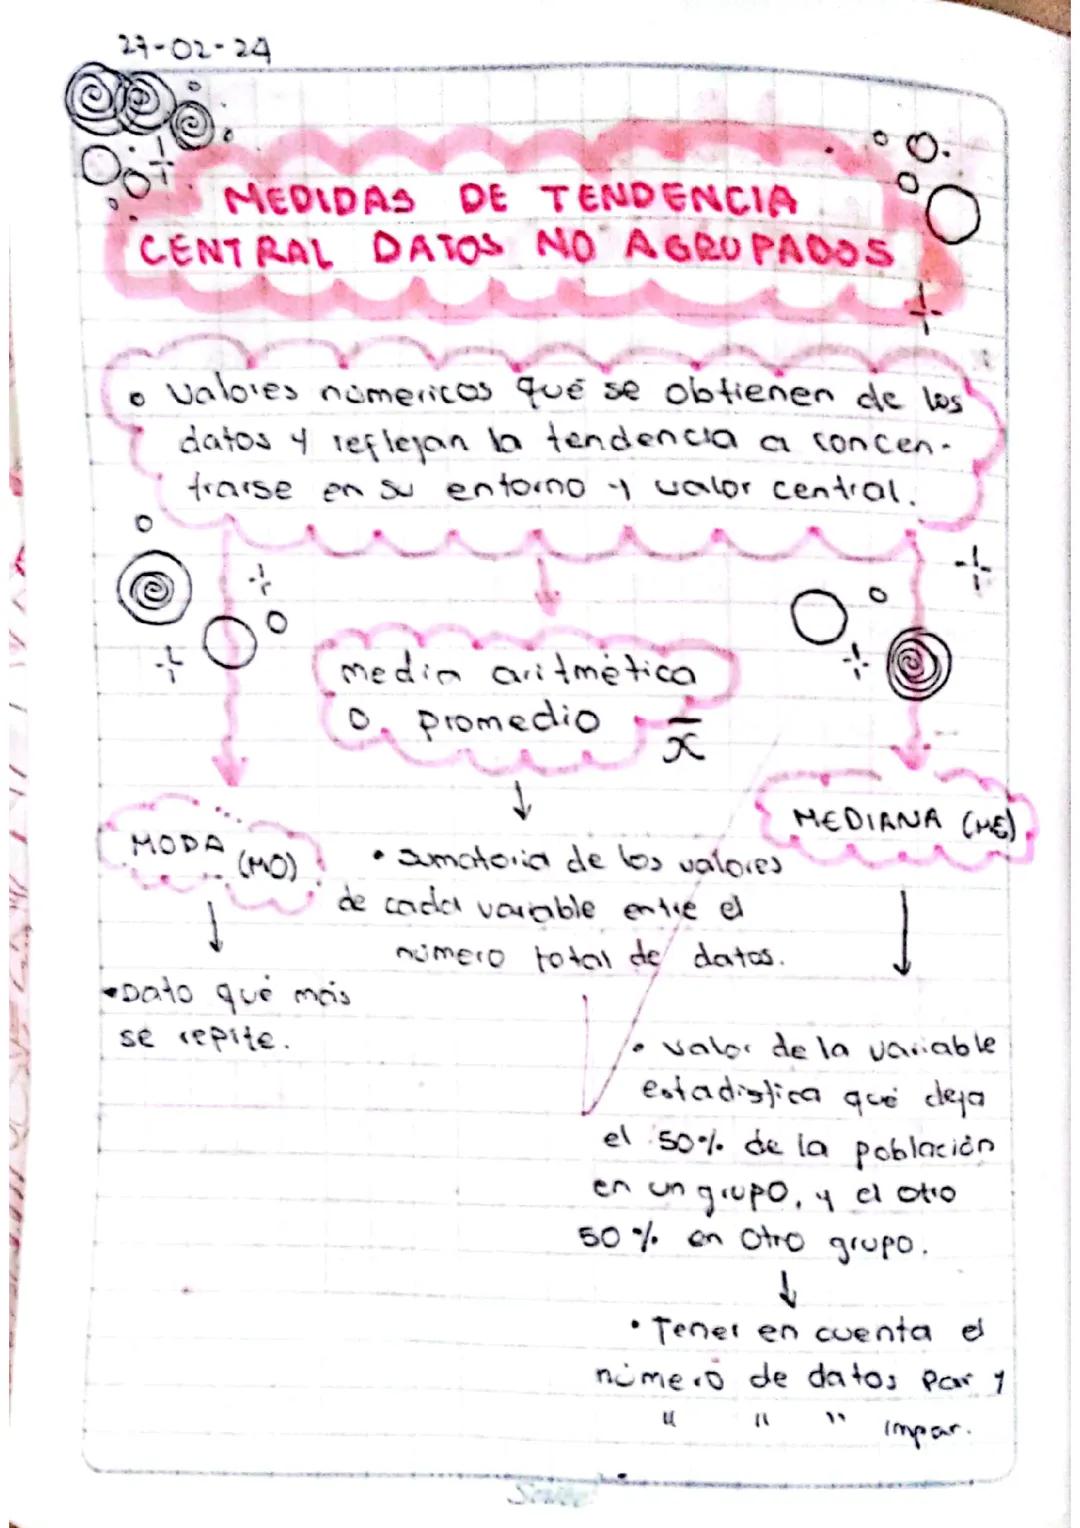 27-02-24
MEDIDAS DE TENDENCIA
CENTRAL DATOS NO AGRUPADOS
• Valores númericos qué se obtienen de los
datos y reflejan la tendencia a concen-
trarse en su entorno y valor central.
media aritmética
o promedio x̄
MODA (MO)
• sumatoria de los valores
de cada variable entre el
número total de datos.
• Dato qué más
se repite.
MEDIANA (ME)
• valor de la variable
estadistica qué deja
el 50% de la población
en un grupo, y el otro
50% en otro grupo.
• Tener en cuenta el
número de datos par y
" " " impar.